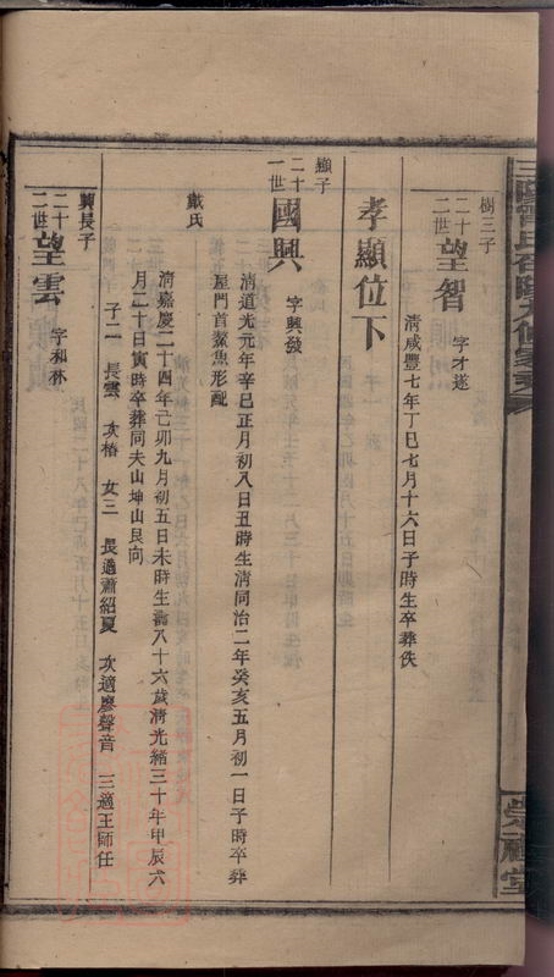 樹三子
二十二世 望智 字才遂
清咸豐七年丁巳七月十六日子時生卒葬佚
孝顯位下
顯子
二十一世 國興 字興發
清道光元年辛巳正月初八日丑時生清同治二年癸亥五月初一日子時卒葬
屋門首鰲魚形配
戴氏
清嘉慶二十四年己卯九月初五日未時生壽八十六歲清光緒三十年甲辰六
月二十日寅時卒葬同夫山坤山艮向
子二 長雲 次椿 女三 長適蕭紹夏 次適廖聲音 三適王師任
興長子
二十二世 望雲 字和林